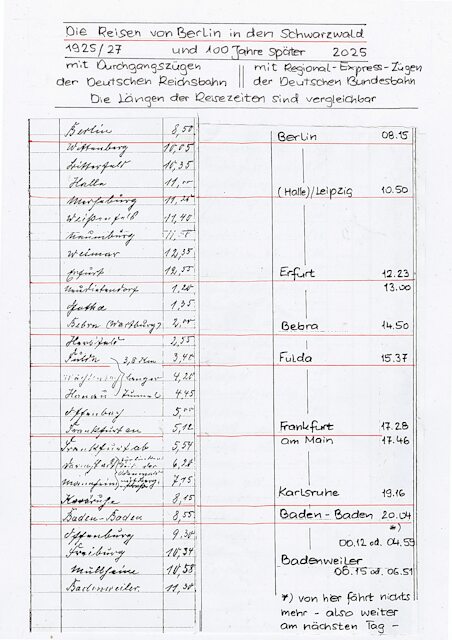 Die Reisen von Berlin in den Schwarzwald
1925/27 und 100 Jahre Später 2025
mit Durchgangszügen || mit Regional-Express-Zügen
der Deutschen Reichsbahn || der Deutschen Bundesbahn
Die Längen der Reisezeiten sind vergleichbar
Berlin 8,50 Berlin 08.15
Wittenberg 10,05
Bitterfeld 10,35
Halle 11,00 (Halle)/Leipzig 10.50
Merseburg 11,20
Weißenfels 11,40
Naumburg
Weimar 12,38
Erfurt 12,55 Erfurt 12.23
Neudietendorf 1.20 13.00
Gotha 1,35
Bebra (Wartburg) 2,00 Bebra 14.50
Hersfeld 2,55
Fulda 3,40 Fulda 15.37
3,8 Km
langer
Tunnel
4,20
Hanau 4.45
Offenbach 5,00
Frankfurt an 5,12 Frankfurt 17.28
Frankfurt ab 5,54 am Main 17.46
Darmstadt 6,28
Mannheim 7,15
Karlsruhe 8,15 Karlsruhe 19.16
Baden-Baden 8,55 Baden-Baden 20.04
*)
Offenburg 9,30 00.12 od. 04.59
Freiburg 10,34 Badenweiler
Müllheim 10,58 06.15 od. 06.51
Badenweiler 11,30
*) von hier fährt nichts
mehr - also weiter
am nächsten Tag -